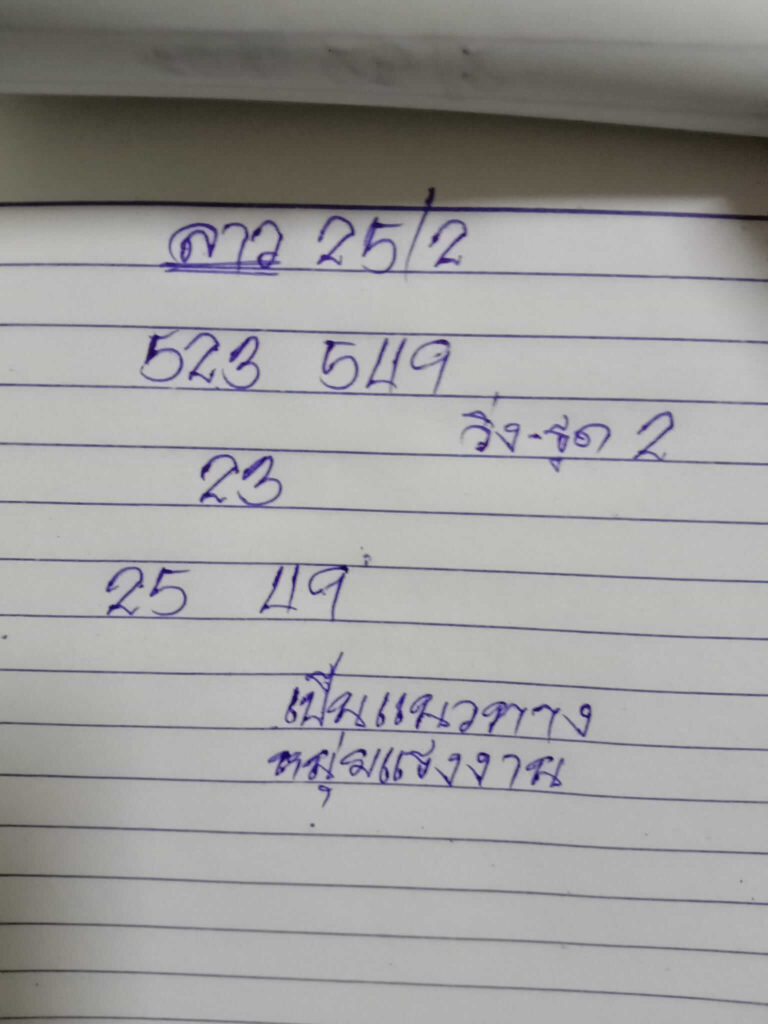 ลาว 25/2
523 549
วิ่ง-รูด 2
23
25 49
เป็นแนวทาง
หนุ่มแรงงาน